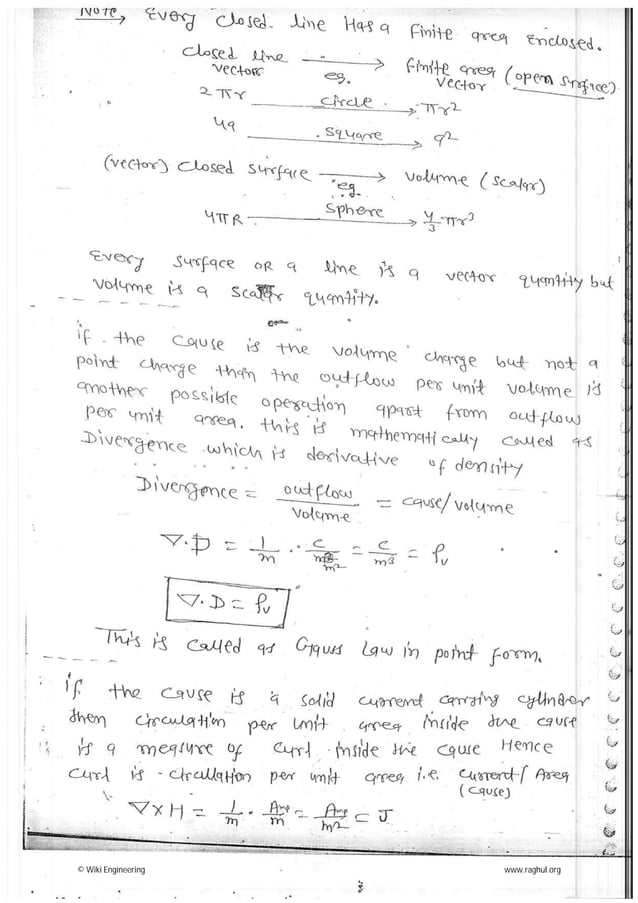 Note, Every closed line Has a finite area Enclosed.
closed line ⟶ finite area (open surface)
vectors eg. vector
2πr circle ⟶ πr²
4a square ⟶ a²
(vector) closed surface ⟶ volume (scalar)
eg.
4πR sphere ⟶ 4/3 πr³
Every surface OR a line is a vector quantity but
volume is a scalar quantity.
if the cause is the volume charge but not a
point charge than the outflow per unit volume is
another possible operation apart from outflow
per unit area. this is mathematically called as
Divergence which is derivative of density
Divergence = outflow/volume = cause/volume
∇.D = 1/m . c/m² = c/m³ = ρv
∇.D = ρv
This is called as Gauss Law in point form.
if the cause is a solid current carrying cylinder
then circulation per unit area inside the cause
is a measure of curl inside the cause Hence
curl is circullation per unit area i.e. current/Area
(cause)
∇×H = 1/m . Amp/m = Amp/m² = J
© Wiki Engineering www.raghul.org